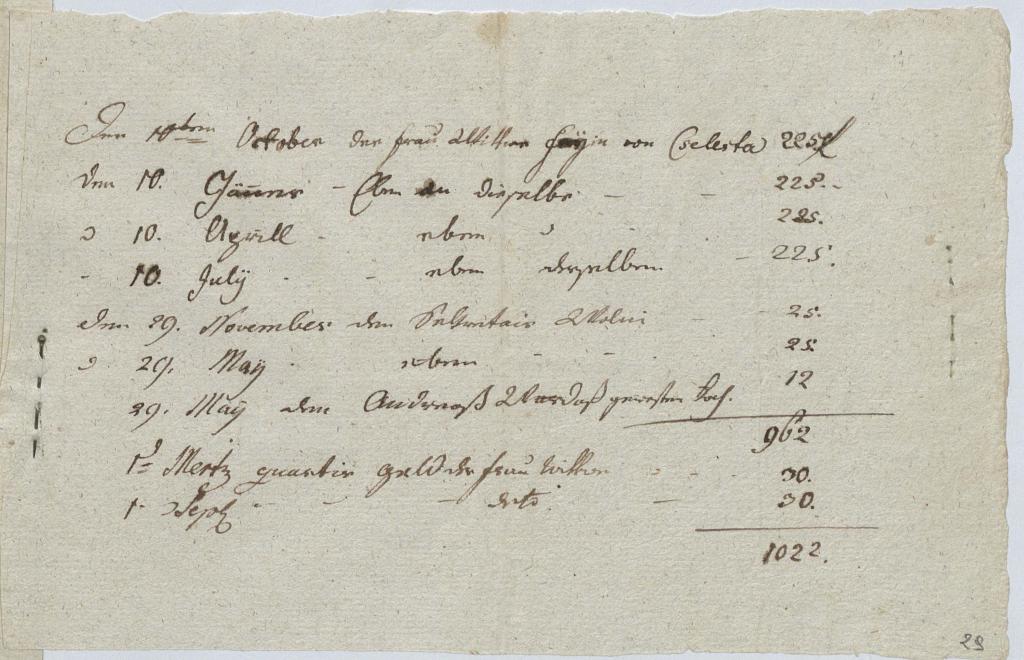 Den 10ten October der frau Wittwe Fayin von Cselesta 225 f
den 10. Jänner - Eben an dieselbe - - 225.-
" 10. Aprill - eben " - 225.
- 10. July - - eben derselben - 225.
den 29. November dem Sekretair - 25.
" 29. May - eben - - 25
29. May dem Andreaß gewesten Koch. 12
962
1t Mertz quartir geld der frau Wittwe - - 30.
1- Sept - - detto - 30.
1022.
29